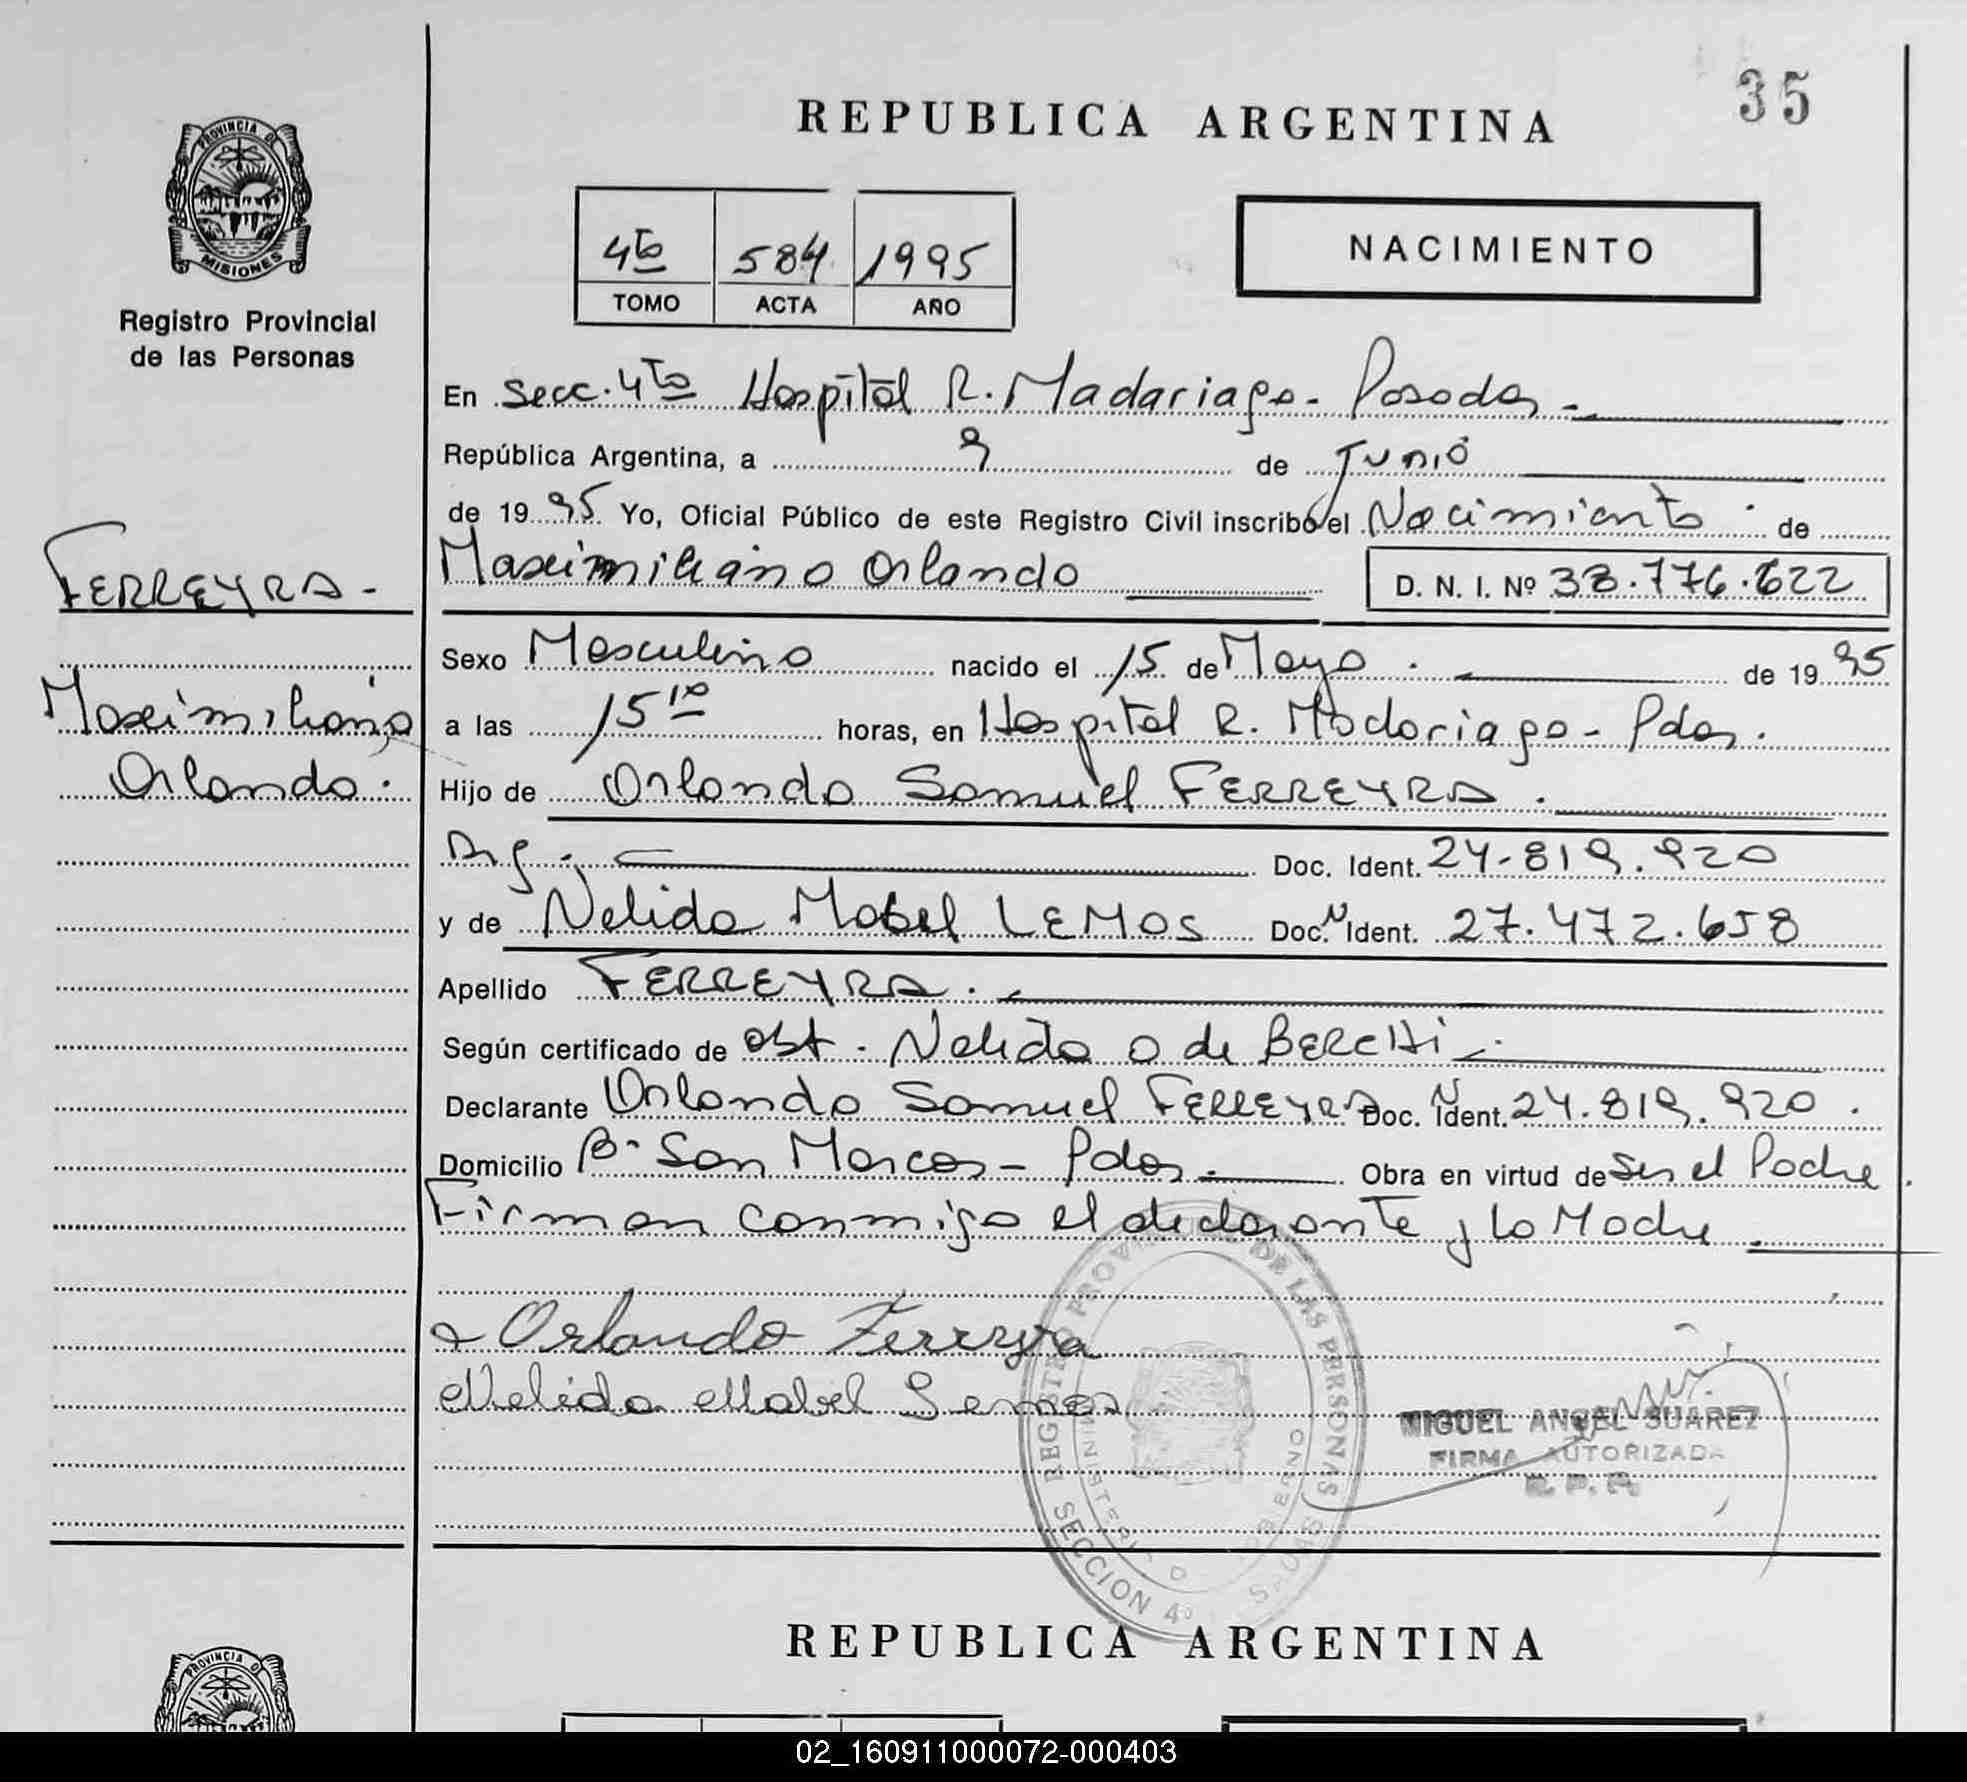 35
REPUBLICA ARGENTINA
PROVINCIA DE
MISIONES
Registro Provincial
de las Personas
4to 584 1995
TOMO ACTA AÑO
NACIMIENTO
En Secc. 4to Hospital R. Madariaga - Posadas -
República Argentina, a 9 de Junio
de 1995 Yo, Oficial Público de este Registro Civil inscribo el Nacimiento de
Maximiliano Orlando D. N. I. Nº 38.776.622
FERREYRA -
Maximiliano
Orlando.
Sexo Masculino nacido el 15 de Mayo. de 1995
a las 15 10 horas, en Hospital R. Madariaga - Pdas.
Hijo de Orlando Samuel FERREYRA.
Arg. - Doc. Ident. 24.819.920
y de Nelida Mabel LEMOS Doc. N Ident. 27.472.658
Apellido FERREYRA. -
Según certificado de obst. Nelida O de BERCHI -.
Declarante Orlando Samuel FERREYRA Doc. N Ident. 24.819.920.
Domicilio Bº San Marcos - Pdas. - Obra en virtud de ser el Padre.
Firman conmigo el declarante y la Madre.
Orlando Ferreyra
Nelida Mabel Lemos
REGISTRO PROVINCIAL DE LAS PERSONAS
SECCION 4º
MIGUEL ANGEL SUAREZ
FIRMA AUTORIZADA
R. P. P.
REPUBLICA ARGENTINA
PROVINCIA DE
02_160911000072-000403